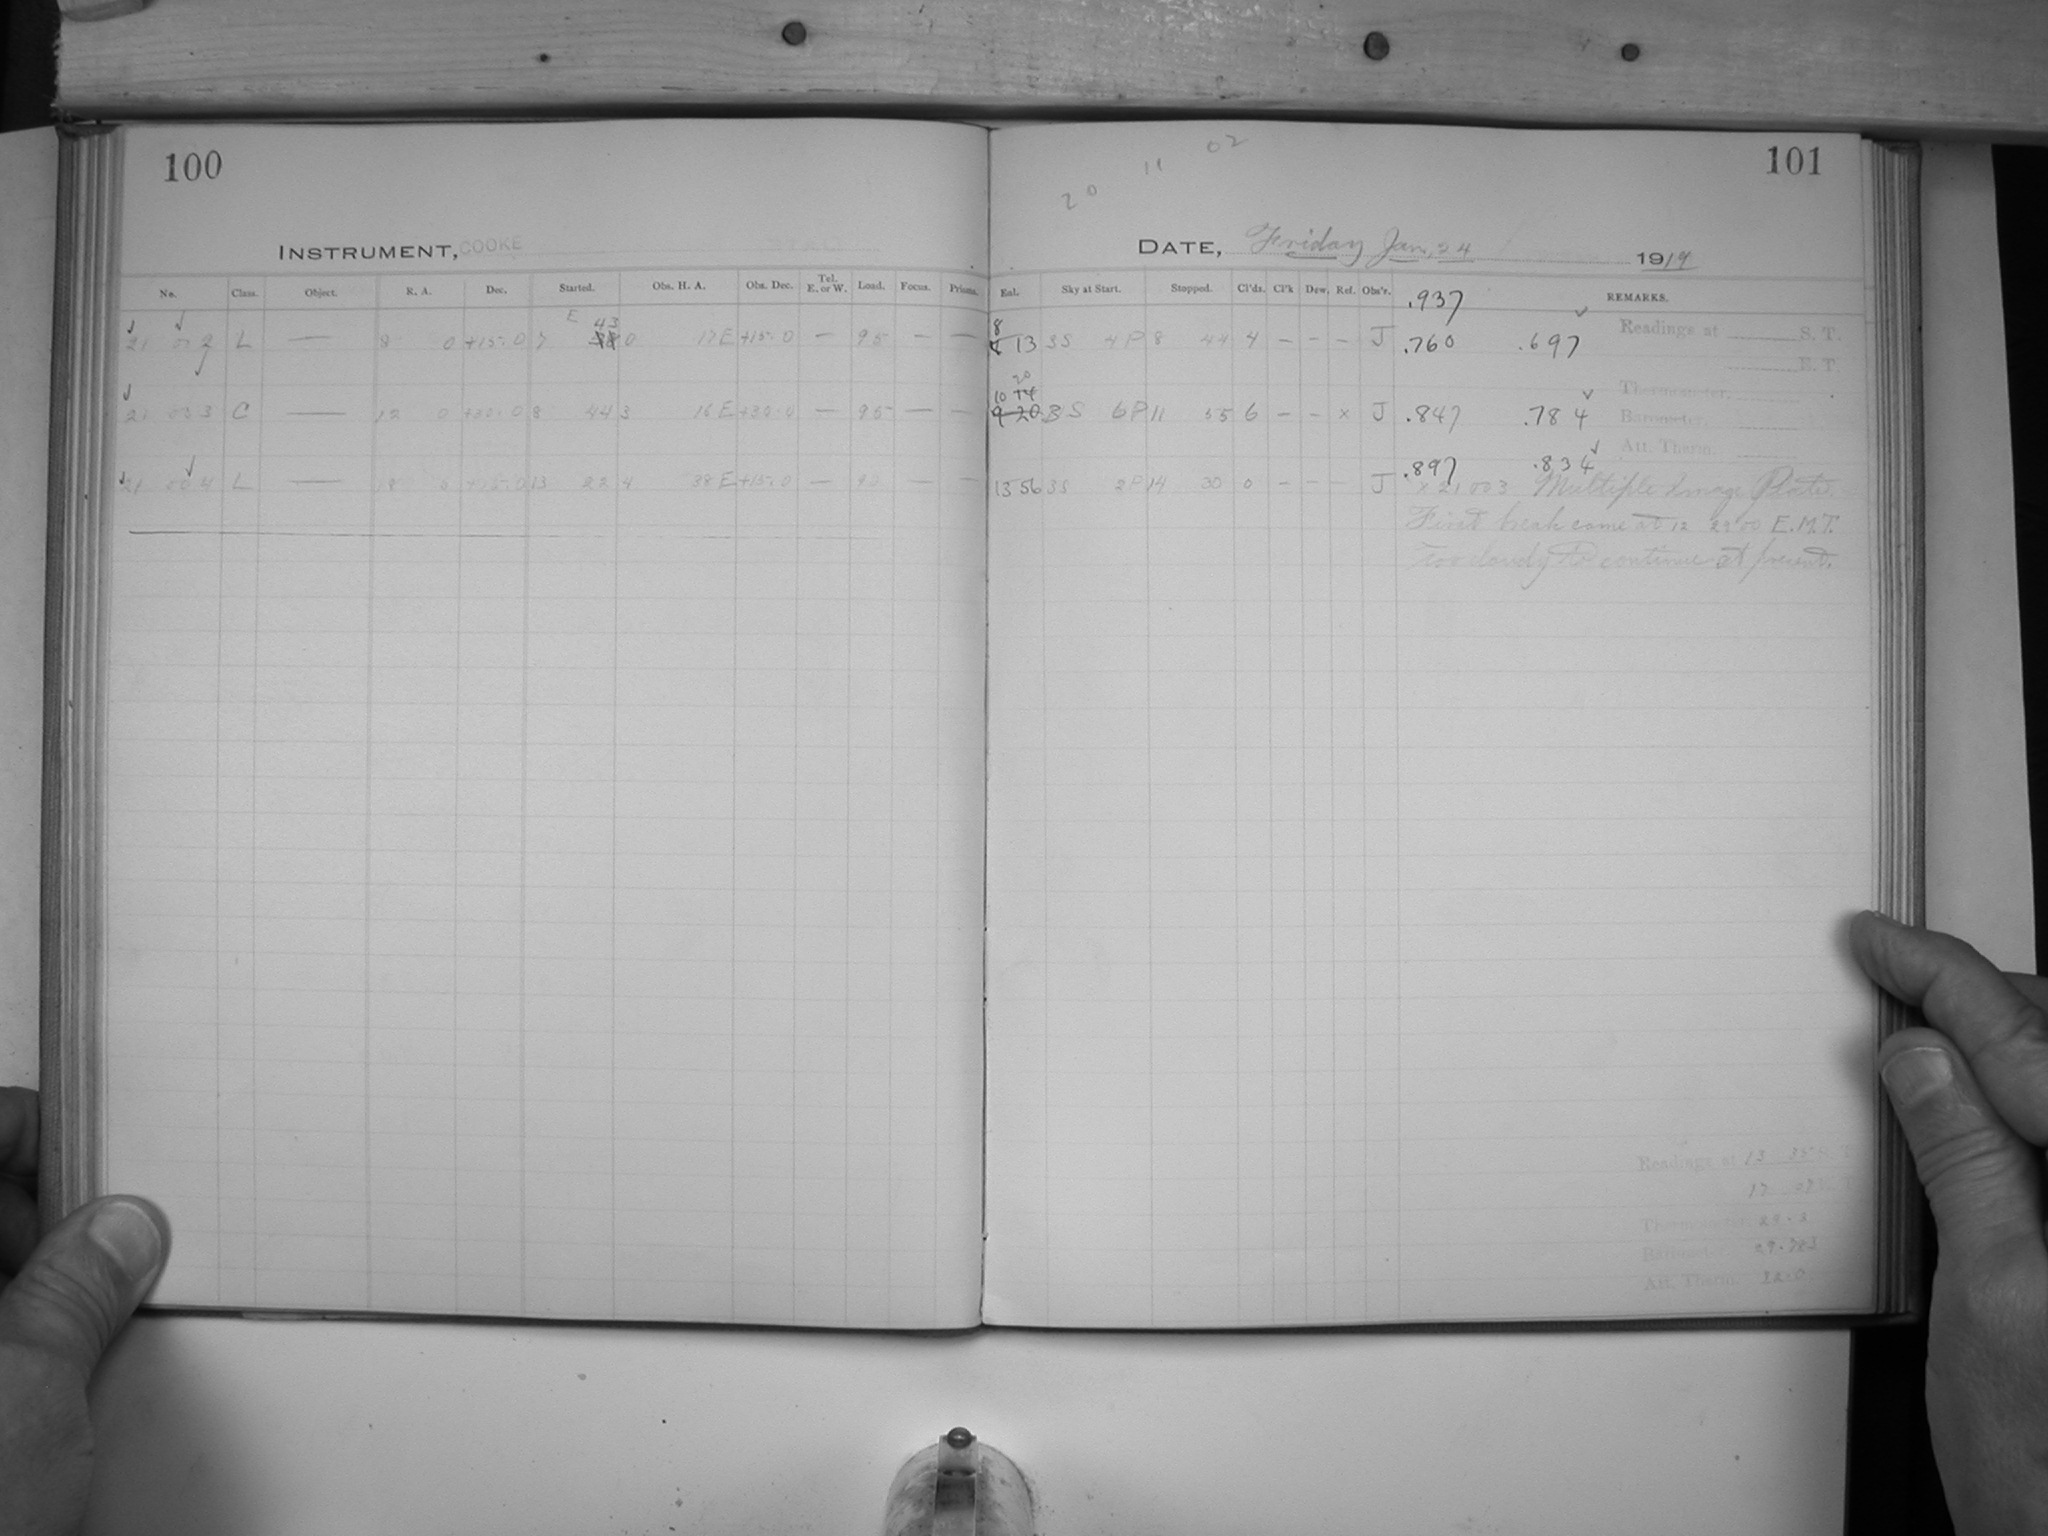 100
INSTRUMENT, COOKE
No. Class. Object. R. A. Dec. Started. Obs. H. A. Obs. Dec. Tel. E. or W. Load. Focus. Prisms.
E 43
21 002 L — 8 0 +15.0 7 0 17 E +15.0 — 95 — —
21 003 C — 12 0 +30.0 8 44 3 16 E +30.0 — 95 — —
21 004 L — 18 0 +15.0 13 22 4 38 E +15.0 — 95 — —
20 11 02
101
DATE, Friday Jan. 24 1919
Eal. Sky at Start. Stopped. Cl'ds. Cl'k Dew. Ref. Obs'r. REMARKS.
.937
8 13 SS 4P 8 44 4 – – – J .760 .697
Readings at S. T.
E. T.
Thermometer.
20
10 14
9 20 BS 6P 11 55 6 – – x J .847 .784
Barometer.
Att. Therm.
.897 .834
13 56 SS 2P 14 30 0 – – – J
x 21 003 Multiple Image Plate.
First break came at 12 29 00 E.M.T.
Too cloudy to continue at present.
Readings at 13 35 S. T.
17
Thermometer 29.2
Barometer 29.383
Att. Therm. 22.0